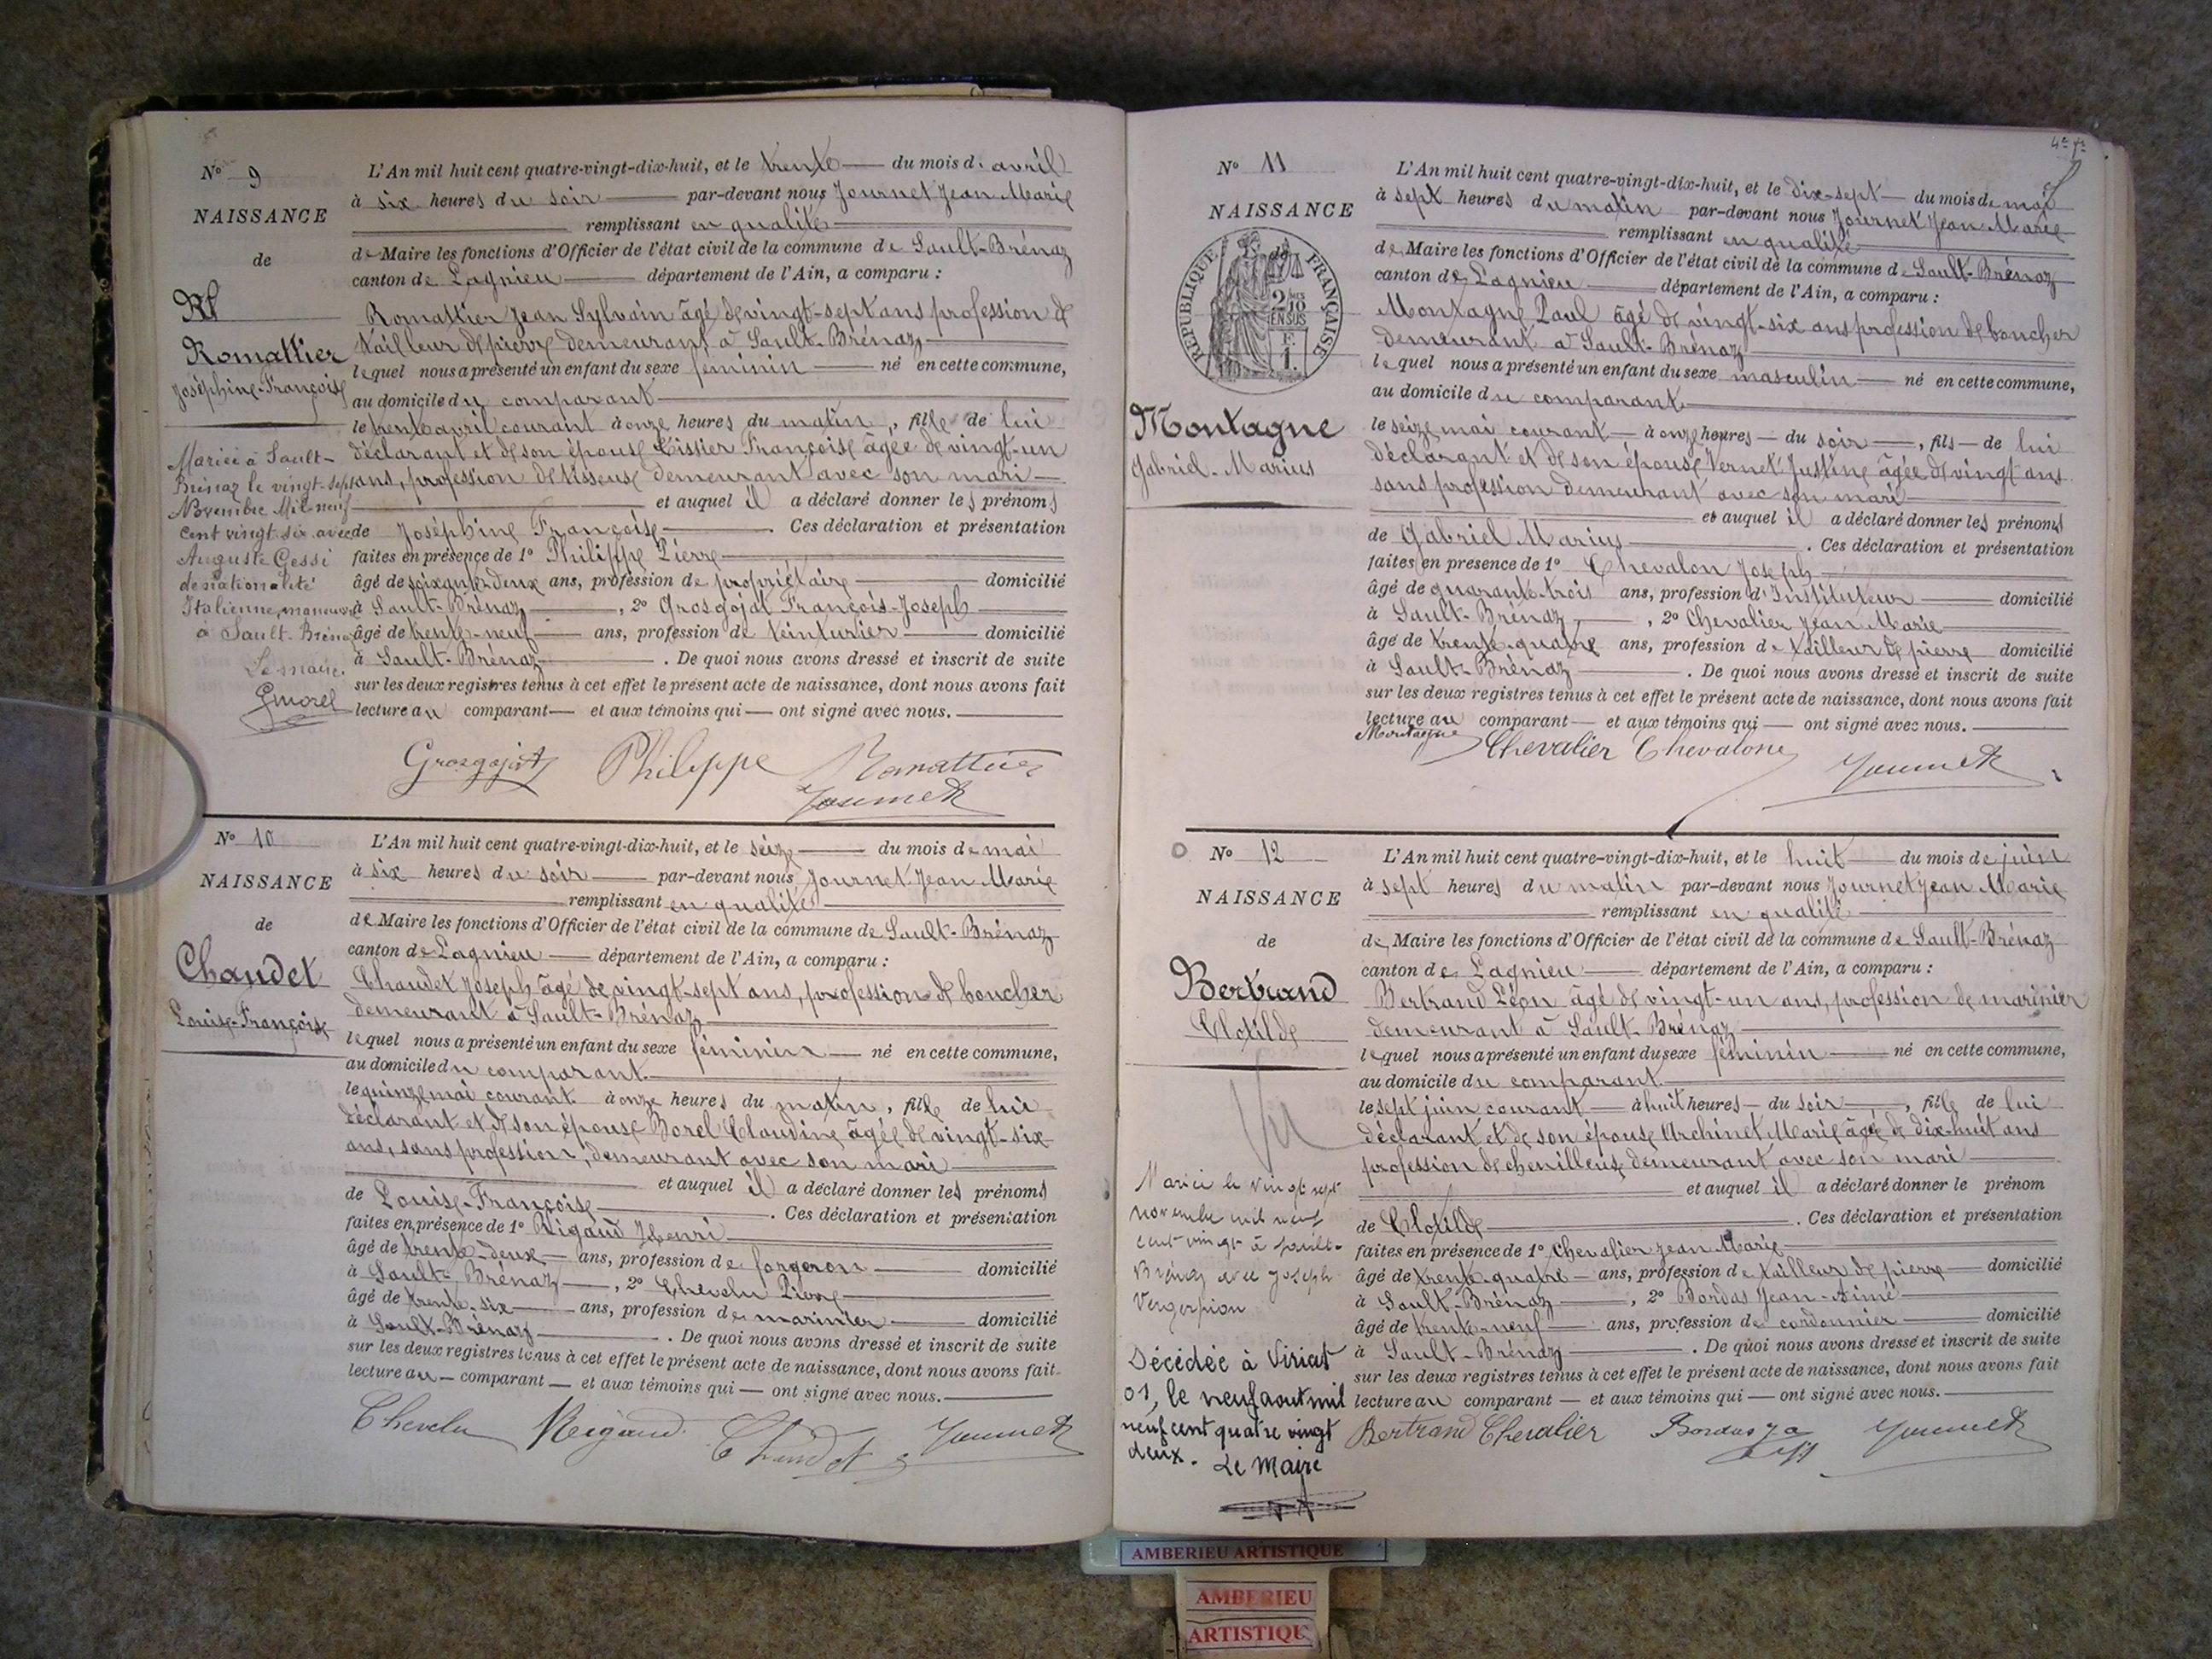 N° 9
NAISSANCE
de
Romattier
Joséphine-Françoise
Mariée à Sault-
Brénaz le vingt-sept
Novembre Mil neuf
cent vingt six avec
Auguste Gessi
de nationalité
Italienne, manœuvre
à Sault-Brénaz
Le maire,
Gmorel
L'An mil huit cent quatre-vingt-dix-huit, et le trente du mois d. avril
à six heures du soir par-devant nous Journet Jean Marie
remplissant en qualité
de Maire les fonctions d'Officier de l'état civil de la commune de Sault-Brénaz
canton de Lagnieu département de l'Ain, a comparu :
Romattier Jean Sylvain âgé de vingt-sept ans profession de
tailleur de pierre demeurant à Sault-Brénaz
lequel nous a présenté un enfant du sexe féminin né en cette commune,
au domicile du comparant
le trente avril courant à onze heures du matin, fille de lui
déclarant et de son épouse Tissier Françoise âgée de vingt-un
ans, profession de tisseuse demeurant avec son mari
et auquel il a déclaré donner les prénoms
de Joséphine Françoise. Ces déclaration et présentation
faites en présence de 1° Philippe Pierre
âgé de soixante-deux ans, profession de propriétaire domicilié
à Sault-Brénaz, 2° Grosgojat François-Joseph
âgé de trente-neuf ans, profession de teinturier domicilié
à Sault-Brénaz. De quoi nous avons dressé et inscrit de suite
sur les deux registres tenus à cet effet le présent acte de naissance, dont nous avons fait
lecture au comparant et aux témoins qui ont signé avec nous.
Grosgojat Philippe Romattier
Journet
N° 10
NAISSANCE
de
Chaudet
Louise-Françoise
L'An mil huit cent quatre-vingt-dix-huit, et le seize du mois de mai
à six heures du soir par-devant nous Journet Jean Marie
remplissant en qualité
de Maire les fonctions d'Officier de l'état civil de la commune de Sault-Brénaz
canton de Lagnieu département de l'Ain, a comparu :
Chaudet Joseph âgé de vingt-sept ans, profession de boucher
demeurant à Sault-Brénaz
lequel nous a présenté un enfant du sexe féminin né en cette commune,
au domicile du comparant.
le quinze mai courant à onze heures du matin, fille de lui
déclarant et de son épouse Borel Claudine âgée de vingt-six
ans, sans profession, demeurant avec son mari
et auquel il a déclaré donner les prénoms
de Louise-Françoise. Ces déclaration et présentation
faites en présence de 1° Rigaud Henri
âgé de trente-deux ans, profession de forgeron domicilié
à Sault-Brénaz, 2° Chevelu Pierre
âgé de trente-six ans, profession de marinier domicilié
à Sault-Brénaz. De quoi nous avons dressé et inscrit de suite
sur les deux registres tenus à cet effet le présent acte de naissance, dont nous avons fait
lecture au comparant et aux témoins qui ont signé avec nous.
Chevelu Rigaud Chaudet Journet
N° 11
NAISSANCE
de
REPUBLIQUE FRANÇAISE
2/10
EN SUS
F.
1.
Montagne
Gabriel-Marius
L'An mil huit cent quatre-vingt-dix-huit, et le dix-sept du mois de mai
à sept heures du matin par-devant nous Journet Jean Marie
remplissant en qualité
de Maire les fonctions d'Officier de l'état civil de la commune de Sault-Brénaz
canton de Lagnieu département de l'Ain, a comparu :
Montagne Paul âgé de vingt-six ans profession de boucher
demeurant à Sault-Brénaz
lequel nous a présenté un enfant du sexe masculin né en cette commune,
au domicile du comparant
le seize mai courant à onze heures du soir, fils de lui
déclarant et de son épouse Vernet Justine âgée de vingt ans
sans profession demeurant avec son mari
et auquel il a déclaré donner les prénoms
de Gabriel Marius. Ces déclaration et présentation
faites en presence de 1° Chevalon Joseph
âgé de quarante-trois ans, profession d'Instituteur domicilié
à Sault-Brénaz, 2° Chevalier Jean Marie
âgé de trente-quatre ans, profession de tailleur de pierre domicilié
à Sault-Brénaz. De quoi nous avons dressé et inscrit de suite
sur les deux registres tenus à cet effet le présent acte de naissance, dont nous avons fait
lecture au comparant et aux témoins qui ont signé avec nous.
Montagne Chevalier Chevalon Journet
N° 12
NAISSANCE
de
Bertrand
Clotilde
Vu
Mariée le vingt sept
novembre mil neuf
cent vingt à Sault-
Brénaz avec Joseph
Vengerpion
Décédée à Viriat
01, le neuf aout mil
neuf cent quatre vingt
deux. Le Maire
L'An mil huit cent quatre-vingt-dix-huit, et le huit du mois de juin
à sept heures du matin par-devant nous Journet Jean Marie
remplissant en qualité
de Maire les fonctions d'Officier de l'état civil de la commune de Sault-Brénaz
canton de Lagnieu département de l'Ain, a comparu :
Bertrand Léon âgé de vingt-un ans, profession de marinier
demeurant à Sault-Brénaz
lequel nous a présenté un enfant du sexe féminin né en cette commune,
au domicile du comparant.
le sept juin courant à huit heures du soir, fille de lui
déclarant et de son épouse Archinet Marie âgée de dix-huit ans
profession de chenilleuse demeurant avec son mari
et auquel il a déclaré donner le prénom
de Clotilde. Ces déclaration et présentation
faites en présence de 1° Chevalier Jean Marie
âgé de trente-quatre ans, profession de tailleur de pierre domicilié
à Sault-Brénaz, 2° Bordas Jean-Aimé
âgé de trente-neuf ans, profession de cordonnier domicilié
à Sault-Brénaz. De quoi nous avons dressé et inscrit de suite
sur les deux registres tenus à cet effet le présent acte de naissance, dont nous avons fait
lecture au comparant et aux témoins qui ont signé avec nous.
Bertrand Chevalier Bordas Ja Journet
AMBERIEU ARTISTIQUE
AMBERIEU
ARTISTIQUE